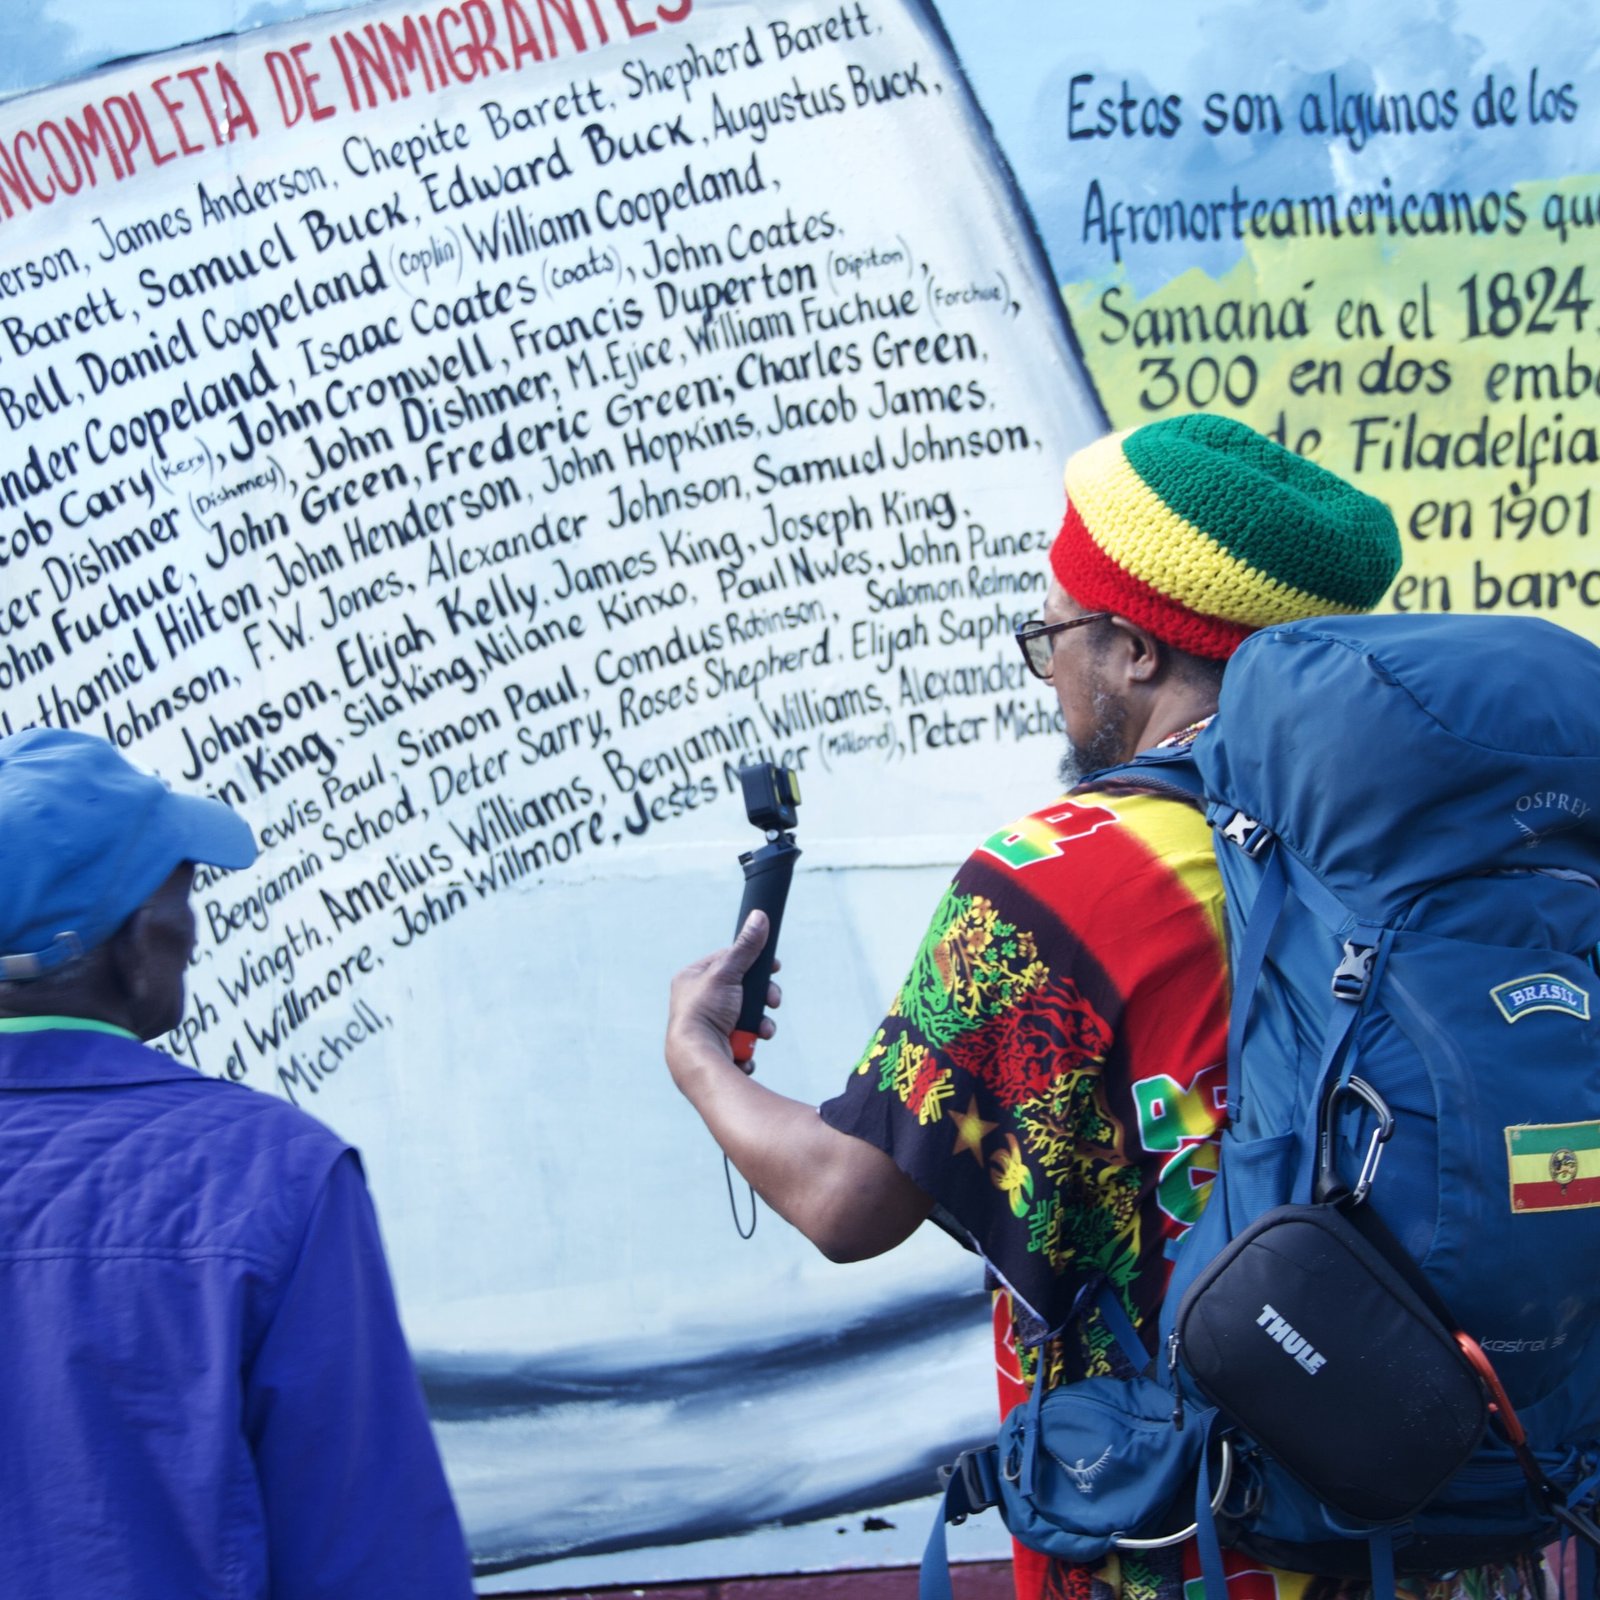 INCOMPLETA DE INMIGRANTES
erson, James Anderson, Chepite Barett, Shepherd Barett,
Barett, Samuel Buck, Edward Buck, Augustus Buck,
Bell, Daniel Coopeland (Coplin) William Coopeland,
nder Coopeland, Isaac Coates (Coats), John Coates,
cob Cary (Kery), John Cronwell, Francis Duperton (Dipiton),
ter Dishmer (Dishmey), John Dishmer, M. Ejice, William Fuchue (Forchue),
ohn Fuchue, John Green, Frederic Green; Charles Green,
Nathaniel Hilton, John Henderson, John Hopkins, Jacob James,
Johnson, F.W. Jones, Alexander Johnson, Samuel Johnson,
Johnson, Elijah Kelly, James King, Joseph King,
in King, Sila King, Nilane Kinxo, Paul Nwes, John Punez
Lewis Paul, Simon Paul, Comdus Robinson, Salomon Relmon
Benjamin Schod, Deter Sarry, Roses Shepherd, Elijah Sapher
eph Wingth, Amelius Williams, Benjamin Williams, Alexander
el Willmore, John Willmore, Jeses Miller (Millord), Peter Miche
Michell,
Estos son algunos de los
Afronorteamericanos que
Samaná en el 1824,
300 en dos emba
de Filadelfia
en 1901
en barc
OSPREY
BRASIL
THULE
kestrel 38